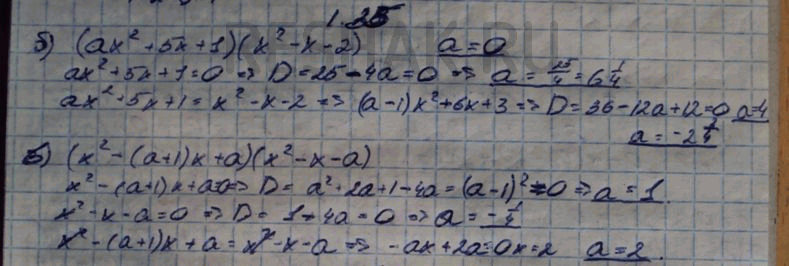 1.25
б) (ax² + 5x + 1)(x² - x - 2) a = 0
ax² + 5x + 1 = 0 => D = 25 - 4a = 0 => a = 25/4 = 6 1/4
ax² + 5x + 1 = x² - x - 2 => (a-1)x² + 6x + 3 => D = 36 - 12a + 12 = 0 a = 4
(x² - (a+1)x + a)(x² - x - a)
x² - (a+1)x + a = 0 => D = a² + 2a + 1 - 4a = (a-1)² = 0 => a = 1
x² - x - a = 0 => D = 1 + 4a = 0 => a = - 1/4
x² - (a+1)x + a = x² - x - a => -ax + 2a = 0 x = 2 a = 2
RESHAK.RU